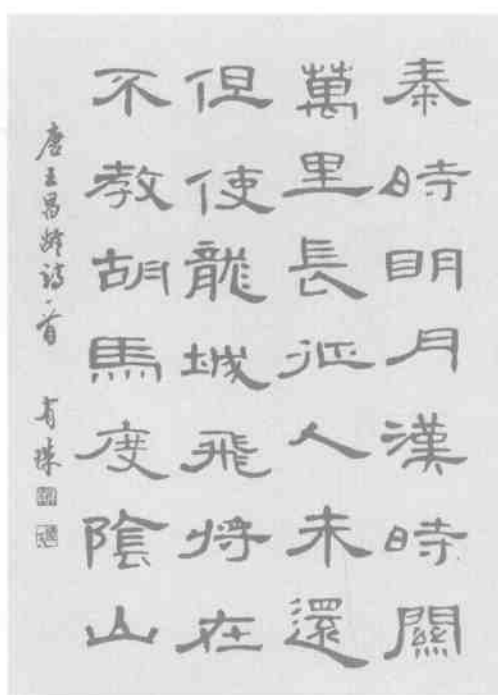 秦時明月漢時關
萬里長征人未還
但使龍城飛將在
不教胡馬度陰山
唐王昌齡詩一首 有珠